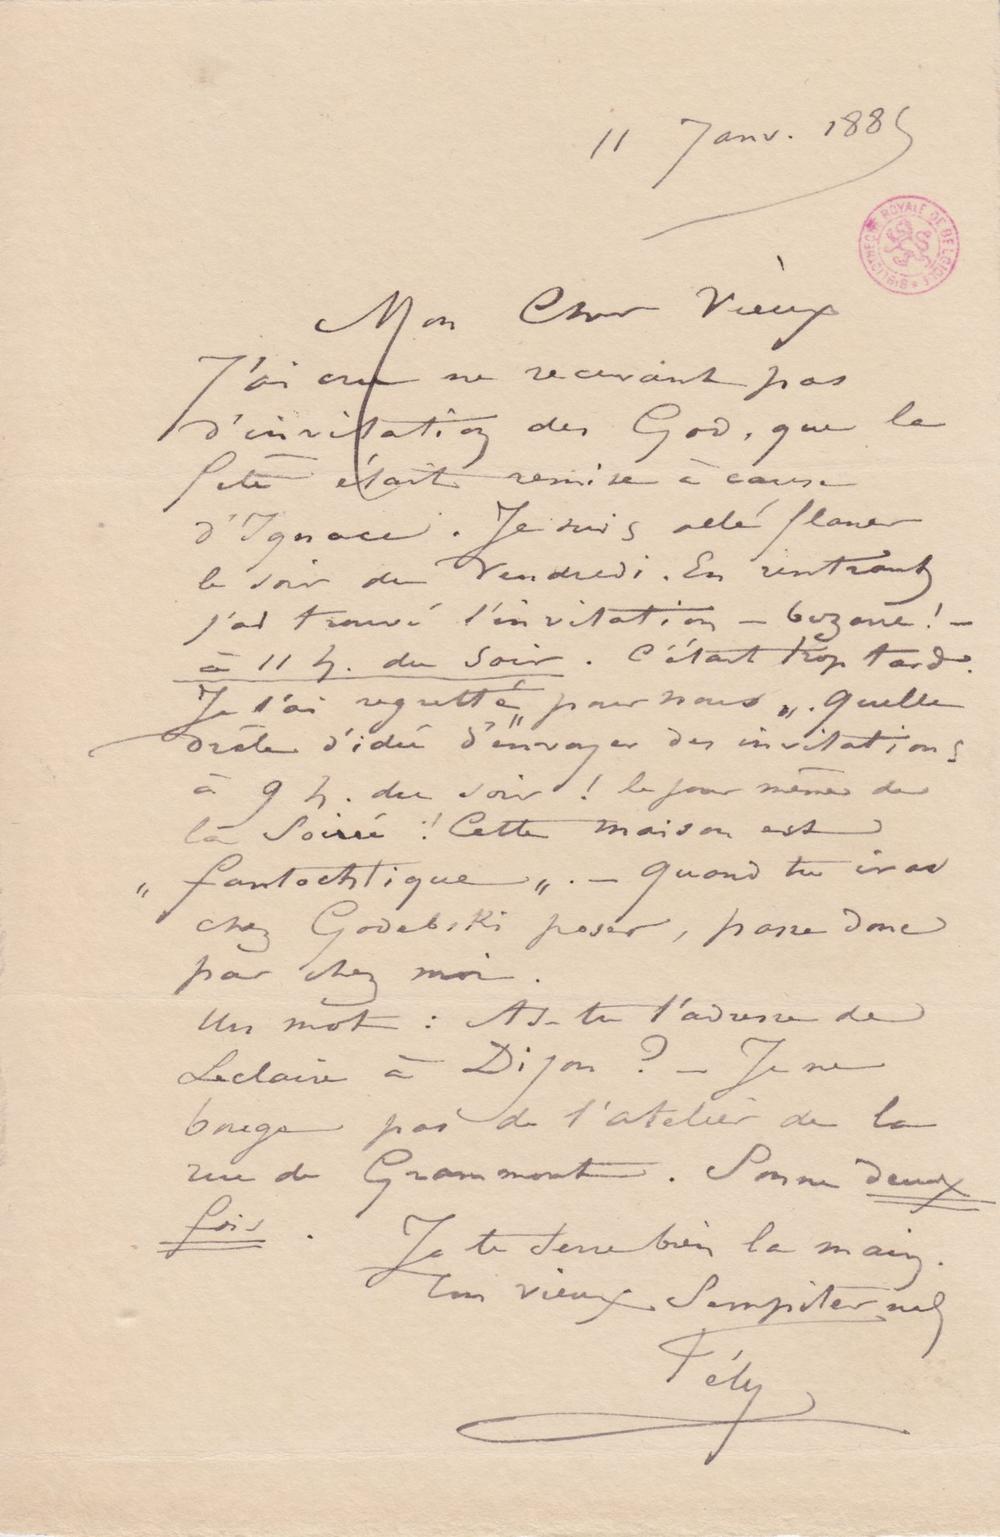 11 Janv. 1885
BIBLIOTHEQUE ROYALE DE BELGIQUE
Mon Cher Vieux
J'ai cru ne recevant pas
d'invitation des God. que la
fête était remise à cause
d'Ignace. Je suis allé flaner
le soir du Vendredi. En rentrant
j'ai trouvé l'invitation – bizarre! –
à 11 h. du soir. C'était trop tard.
Je l'ai regretté „pour nous„. Quelle
drôle d'idée d'envoyer des invitations
à 9 h. du soir! le jour même de
la Soirée! Cette maison est
„fantochtique„. – Quand tu iras
chez Godebski poser, passe donc
par chez moi.
Un mot: As-tu l'adresse de
Leclaire à Dijon? – Je ne
bouge pas de l'atelier de la
rue de Grammont. Sonne deux
fois.
Je te serre bien la main.
Ton vieux Sempiternel
Fély